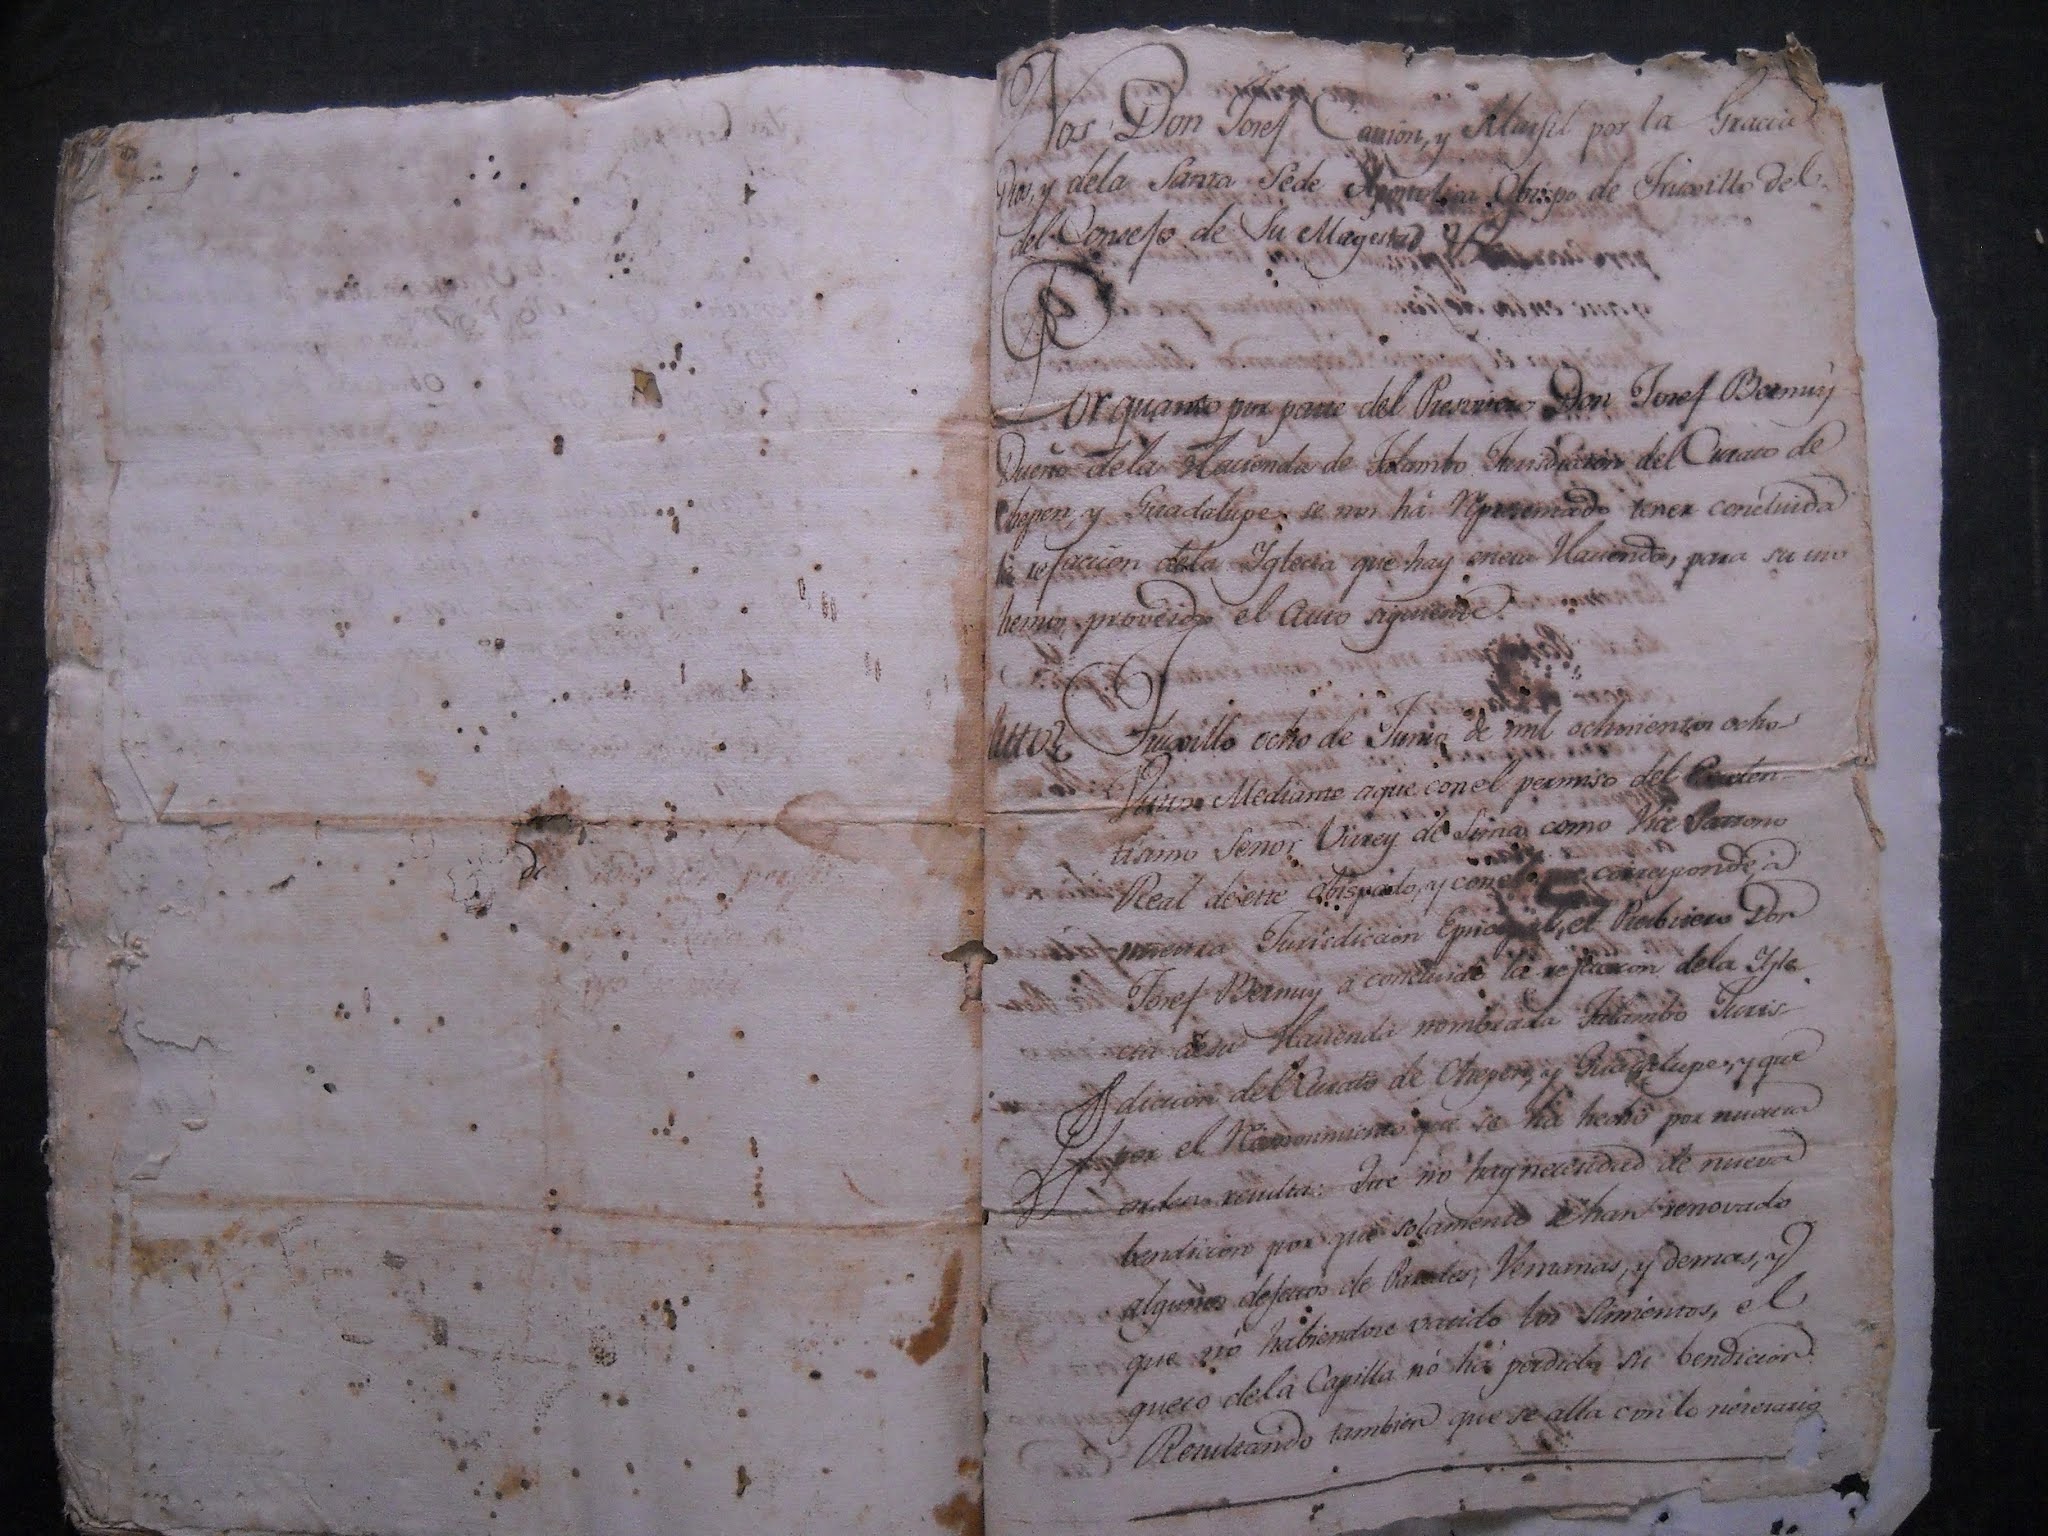 Nos Don Josef Carrion, y Marfil por la Gracia
Dios, y dela Santa Sede Apostolica Obispo de Truxillo del
del Consejo de Su Magestad &.
Por quanto por parte del Presvitero Don Josef Bermuy
Dueño de la Hacienda de Talambo Jurisdiccion del Curato de
Chepen, y Guadalupe se nos há Representado tener concluida
la refaccion dela Iglecia que hay enesa Hacienda, para su uso
hemos proveido el Auto siguiente.
Auto Truxillo ocho de Junio de mil ochocientos ocho
Vistos: Mediante aque con el permiso del Exelen-
tisimo Señor Virrey de Lima como Vice Patrono
Real de este Obispado, y con el que corresponde á
nuestra Jurisdiccion Episcopal, el Presbitero Don
Josef Bermuy á concluido la refaccion dela Igle
cia desu Hacienda nombrada Talambo Juris
diccion del Curato de Chepen, y Guadelupe, y que
por el Reconocimiento que se há hecho por nuestra
orden resulta: Que no hay necesidad de nueva
bendicion por que solamente se han renovado
algunos defectos de Paredes, Ventanas, y demas, y
que nó habiendose variado los Simientos, el
gueco dela Capilla nó há perdido su bendicion.
Resultando tambien que se alla con lo nécesario